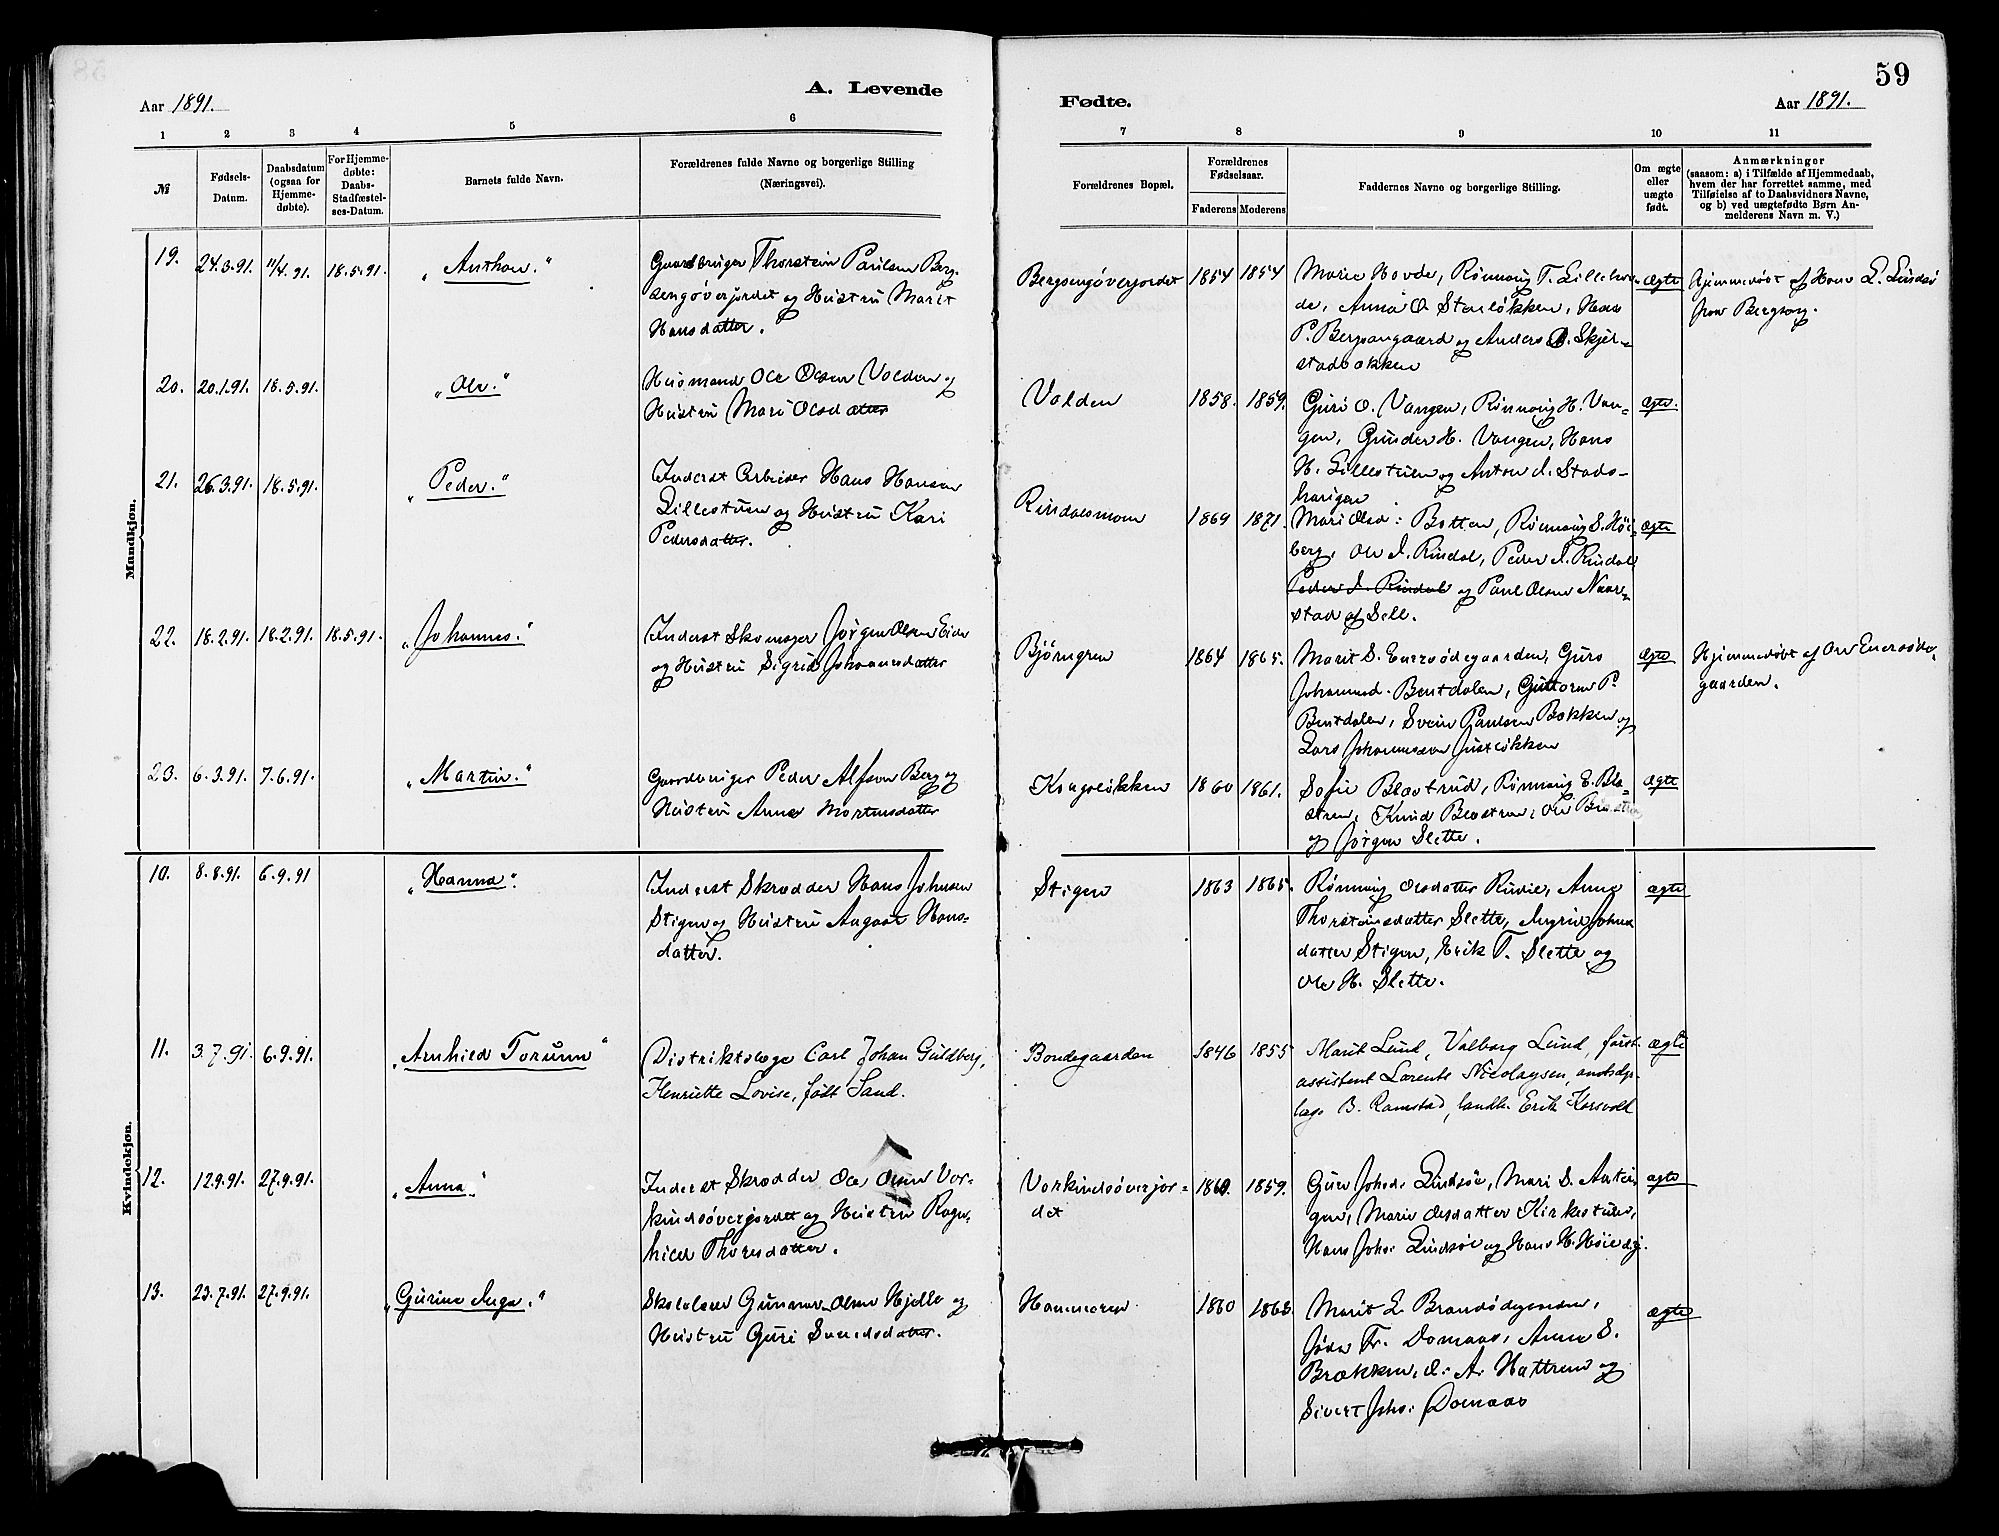 59
Aar 1891.
A. Levende
Fødte.
Aar 1891.
1 2 3 4 5 6 7 8 9 10 11
№
Fødsels-
Datum.
Daabsdatum
(ogsaa for
Hjemme-
døbte).
For Hjemme-
døbte:
Daabs-
Stadfæstel-
ses-Datum.
Barnets fulde Navn.
Forældrenes fulde Navne og borgerlige Stilling
(Næringsvei).
Forældrenes Bopæl.
Forældrenes
Fødselsaar.
Faderens Moderens
Faddernes Navne og borgerlige Stilling.
Om ægte
eller
uægte
født.
Anmærkninger
(saasom: a) i Tilfælde af Hjemmedaab,
hvem der har forrettet samme, med
Tilføielse af to Daabsvidners Navne,
og b) ved uægtefødte Børn An-
melderens Navn m. V.)
Mandkjøn.
19. 24.3.91. 11/4.91. 18.5.91. "Anthon."
Gaardbruger Thorstein Paulsen Berg-
sengøverjordet og Hustru Marit
Hansdatter.
Bergsengøverjordet 1854 1854
Marie Hovde, Rønnaug T. Lilleho-
de, Anna O. Stenløkken, Hans
P. Bergsengaard og Anders O. Skjer-
stadbakken
ægte
Hjemmedøbt af Hans L. Lindsø
fra Bergseng.
20. 20.1.91. 18.5.91. "Ole."
Husmand Ole Olsen Volden og
Hustru Mari Olsdatter
Volden 1858. 1859.
Guri O. Vangen, Rønnaug H. Van-
gen, Gunder H. Vangen, Hans
H. Lillestuen og Anton J. Stads-
haugen
ægte.
21. 26.3.91. 18.5.91. "Peder."
Inderst Arbeider Hans Hansen
Lillestuen og Hustru Kari
Pedersdatter.
Rindalsmoen 1869 1871.
Mari Olsd: Botten, Rønnaug S. Høi-
berg, Ole J. Rindal, Peder J. Rindal
Peder J. Rindal og Paul Olsen Naar-
stad af Sell.
ægte
22. 18.2.91. 18.2.91. 18.5.91. "Johannes."
Inderst Skomager Jørgen Olsen Eide
og Hustru Sigrid Johannesdatter
Bjørngren 1864 1865.
Marit S. Enersødegaarden, Guro
Johannesd. Bentdalen, Guttorm P.
Bentdalen, Svein Paulsen Bakken og
Lars Johannessen Justløkken
ægte
Hjemmedøbt af Ole Enersøde-
gaarden.
23. 6.3.91. 7.6.91. "Martin."
Gaardbruger Peder Alfson Berg og
Hustru Anne Mortensdatter
Kongsløkken 1860 1861.
Sofie Blæstrud, Rønnaug E. Blæ-
stren, Knud Blæstren, Ole
og Jørgen Slette.
ægte
Kvindekjøn.
10. 8.8.91. 6.9.91 "Hanna".
Inderst Skrædder Hans Johnsen
Stigen og Hustru Aagaat Hans-
datter.
Stigen 1863 1865.
Rønnaug Olsdatter Ruvie, Anne
Thorsteinsdatter Slette, Ingrid Johns
datter Stigen, Erik T. Slette og
Ole H. Slette.
ægte
11. 3.7.91. 6.9.91. "Arnhild Torunn"
Distriktslæge Carl Johan Guldberg,
Henriette Lovise, født Sand.
Bondegaarden 1846 1855
Marit Lund, Valborg Lund, forst-
assistent Lorents Nicolaysen,
læge B. Ramstad, landh. Erik Korsvold
ægte
12. 12.9.91. 27.9.91. "Anna."
Inderst Skrædder Ole Olsen Vor-
kindsøverjordet og Hustru Ragn-
hild Thoresdatter.
Vorkindsøverjor-
det
1860. 1859.
Guro Johsd. Lindsøe, Mari S.
Marie Olsdatter Kirkestuen,
Hans Johs: Lindsøe og Hans H.
ægte
13. 23.7.91. 27.9.91. "Gurine Inga."
Skolelærer Gunnar Olsen Hjelle og
Hustru Guri Svendsdatter.
Hammeren 1860 1868
Marit L. Brandødegaarden,
Fr. Domaas, Anne S.
Brækken, O. A. Hattrem og
Sivert Johs: Domaas
ægte